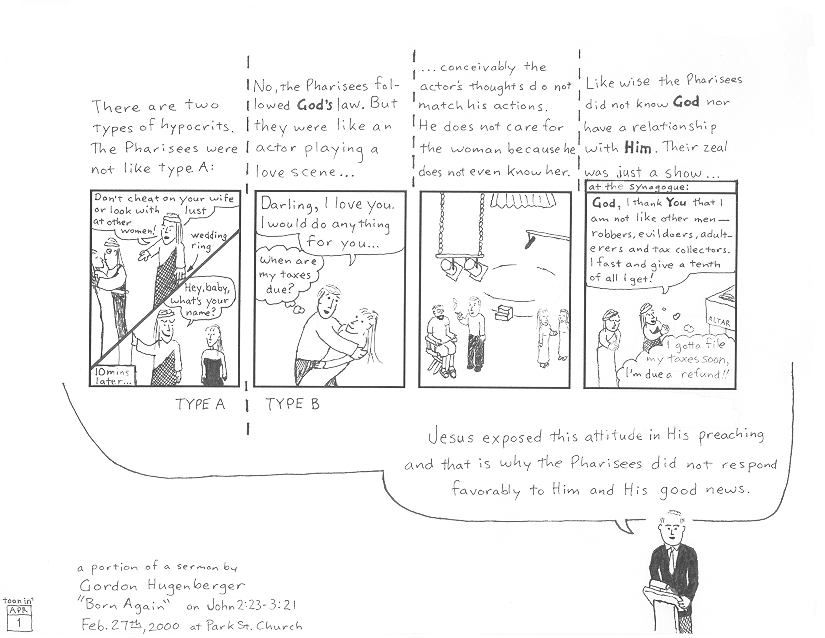 There are two
types of hypocrits.
The Pharisees were
not like type A:
Don't cheat on your wife
or look with lust
at other
women!
wedding
ring
Hey, baby,
what's your
name?
10 mins
later...
TYPE A
No, the Pharisees fol-
lowed God's law. But
they were like an
actor playing a
love scene...
Darling, I love you.
I would do anything
for you...
When are
my taxes
due?
TYPE B
...conceivably the
actor's thoughts do not
match his actions.
He does not care for
the woman because he
does not even know her.
Like wise the Pharisees
did not know God nor
have a relationship
with Him. Their zeal
was just a show...
at the synagogue:
God, I thank You that I
am not like other men—
robbers, evildoers, adult-
erers and tax collectors.
I fast and give a tenth
of all I get!
ALTAR
I gotta file
my taxes soon,
I'm due a refund!!
Jesus exposed this attitude in His preaching
and that is why the Pharisees did not respond
favorably to Him and His good news.
a portion of a sermon by
Gordon Hugenberger
"Born Again" on John 2:23-3:21
Feb. 27th, 2000 at Park St. Church
toonin'
APR
1